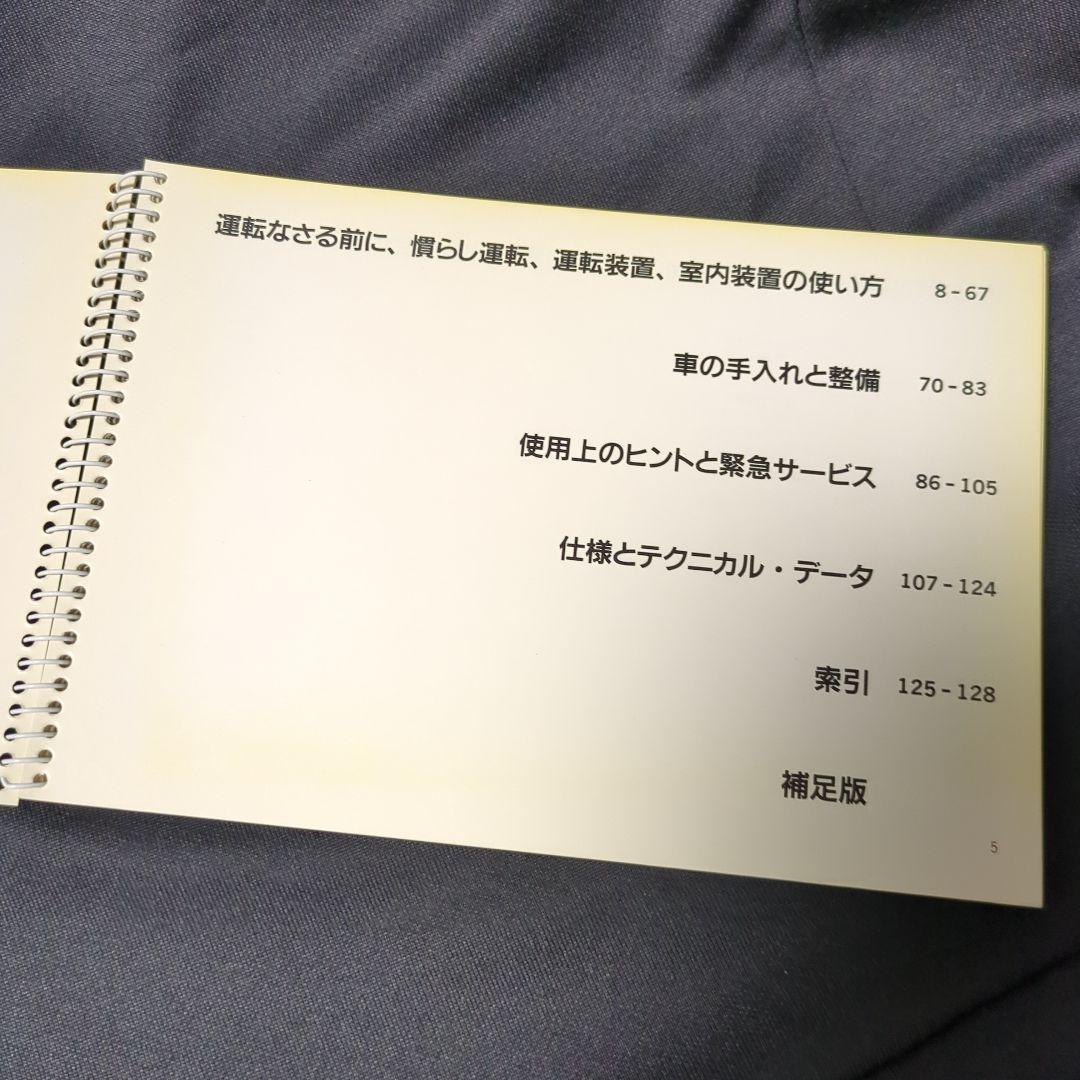 運転なさる前に、慣らし運転、運転装置、室内装置の使い方 8-67
車の手入れと整備 70-83
使用上のヒントと緊急サービス 86-105
仕様とテクニカル・データ 107-124
索引 125-128
補足版
5